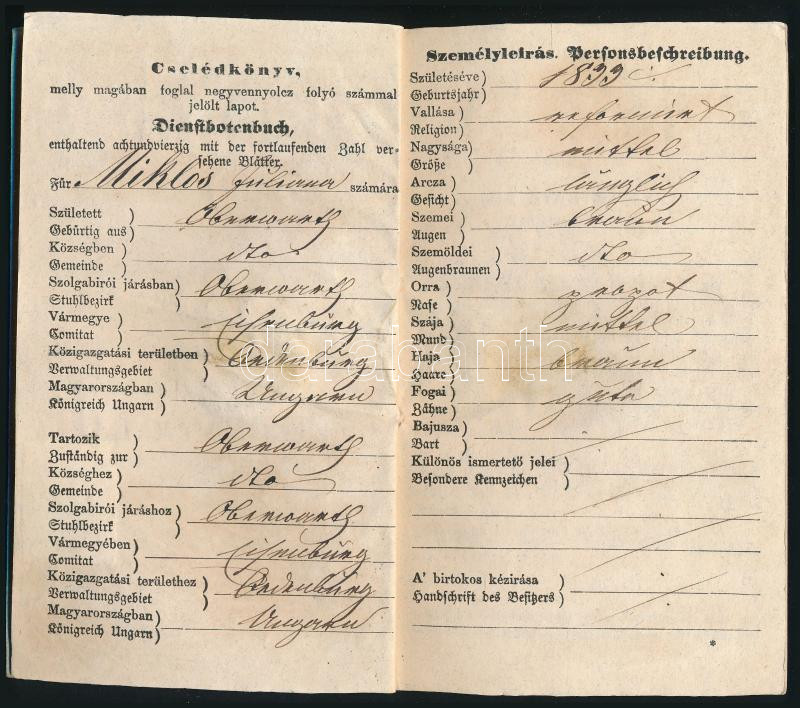 Cselédkönyv,
melly magában foglal negyvennyolcz folyó számmal
jelölt lapot.
Dienstbotenbuch,
enthaltend achtundvierzig mit der fortlaufenden Zahl ver-
sehene Blätter.
Für Miklos Juliana számára
Született
Gebürtig aus) Oberwarth
Községben
Gemeinde) dto
Szolgabirói járásban
Stuhlbezirk) Oberwarth
Vármegye
Comitat) Eisenburg
Közigazgatási területben
Verwaltungsgebiet) Oedenburg
Magyarországban
Königreich Ungarn) Ungarn
Tartozik
Zuständig zur) Oberwarth
Községhez
Gemeinde) dto
Szolgabirói járáshoz
Stuhlbezirk) Oberwarth
Vármegyében
Comitat) Eisenburg
Közigazgatási területhez
Verwaltungsgebiet) Oedenburg
Magyarországban
Königreich Ungarn) Ungarn
Személyleirás. Personsbeschreibung.
Születéséve
Geburtsjahr)
Vallása
Religion) reformirt
Nagysága
Größe) mittel
Arcza
Gesicht) länglich
Szemei
Augen) braun
Szemöldei
Augenbraunen) dto
Orra
Nase)
Szája
Mund) mittel
Haja
Haare) braun
Fogai
Zähne) gute
Bajusza
Bart)
Különös ismertető jelei
Besondere Kennzeichen)
A' birtokos kézirása
Handschrift des Besitzers)
*
darabanth